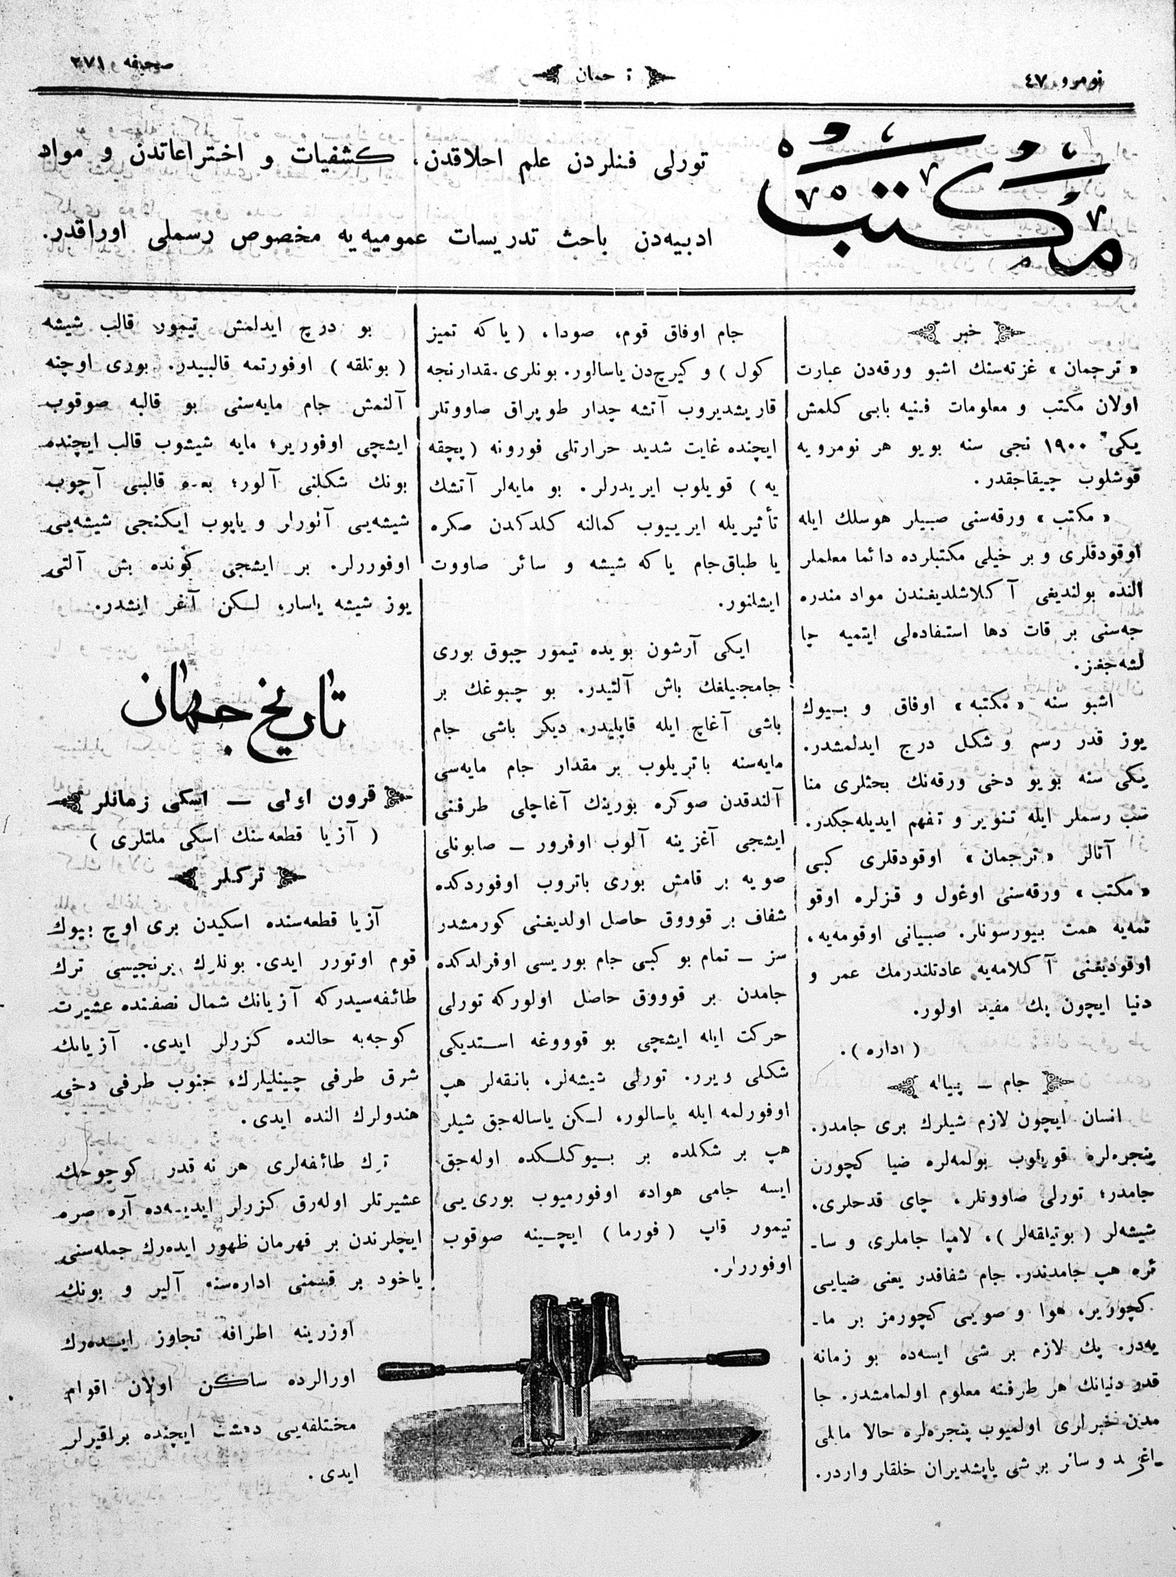 نومرو ٤٧
ترجمان
صحيفه ٣٧١
مكتب
تورلى فنلردن علم اخلاقدن، كشفيات و اختراعاتدن و مواد
ادبيه‌دن باحث تدريسات عموميه‌يه مخصوص رسملى اوراقدر.
خبر
« ترجمان » غزته‌سنك اشبو ورقه‌دن عبارت
اولان مكتب و معلومات فنيه بابى كلمش
يكى ١٩٠٠ نجى سنه بويو هر نومرويه
قوشلوب چيقاجقدر.
« مكتب » ورقه‌سنى صبيلر هوسلك ايله
اوقودقلرى و بر خيلى مكتبلرده دائما معلملر
النده بولنديغى آكلاشلديغندن مواد مندره
جه‌سنى بر قات دها استفاده‌لى ايتميه چا
لشه‌جغز.
اشبو سنه « مكتبه » اوفاق و بيوك
يوز قدر رسم و شكل درج ايدلمشدر.
يكى سنه بويو دخى ورقه‌نك بحثلرى منا
سب رسملر ايله تنوير و تفهم ايديله‌جكدر.
آتالر « ترجمان » اوقودقلرى كبى
« مكتب » ورقه‌سنى اوغول و قزلره اوقو
تمه‌يه همت بيورسونلر. صبيانى اوقومه‌يه،
اوقوديغنى آكلامه‌يه عادتلندرمك عمر و
دنيا ايچون پك مفيد اولور.
( اداره ).
جام ــ پياله
انسان ايچون لازم شيلرك برى جامدر.
پنجره‌لره قويلوب بولمه‌لره ضيا كچورن
جامدر؛ تورلى صاووتلر، چاى قدحلرى،
شيشه‌لر ( بوتيلقه‌لر )، لامپا جاملرى، و سا‌ـ
ئره هپ جامدندر. جام شفاقدر يعنى ضيايى
كچورير، هوا و صويى كچورمز بر ما‌ـ
يه‌در. پك لازم بر شى ايسه‌ده بو زمانه
قدر دنيانك هر طرفنه معلوم اولمامشدر. جا
مدن خبرلرى اولميوب پنجره‌لره حالا ماللى
و سائر بر شى ياپشديران خلقلر واردر.
جام اوفاق قوم، صودا، ( يا كه تميز
كول ) و كيرج‌دن ياسالور. بونلرى مقدارنجه
قاريشديروب آتشه چدار طوپراق صاووتلر
ايچنده غايت شديد حرارتلى فورونه ( پچقه
يه ) قويلوب ايريدرلر. بو مايه‌لر آتشك
تأثيريله ايرييوب كمالنه كلدكدن صكره
يا طباق‌جام يا كه شيشه و سائر صاووت
ايشلنور.
ايكى آرشون بويده تيمور چبوق بورى
جامجيلغك باش آلتيدر. بو چبوغك بر
باشى آغاچ ايله قاپليدر. ديكر باشى جام
مايه‌سنه باتريلوب بر مقدار جام مايه‌سى
آلندقدن صوكره بورينك آغاچلى طرفنى
ايشجى آغزينه آلوب اوفرور ــ صابونلى
صويه بر قامش بورى باتروب اوفوردكده
شفاف بر قوووق حاصل اولديغنى كورمشدر
سز ــ تمام بو كبى جام بوريسى اوفرلدكده
جامدن بر قوووق حاصل اولوركه تورلى
حركت ايله ايشجى بو قوووغه استديكى
شكلى ويرر. تورلى شيشه‌لر، بانقه‌لر هپ
اوفورلمه ايله ياسالور، لكن ياساله‌جق شيلر
هپ بر شكلده بر بيوكلكده اوله‌جق
ايسه جامى هواده اوفورميوب بورى‌يى
تيمور قاپ ( فورما ) ايچينه صوقوب
اوفوررلر.
بو درج ايدلمش تيمور قالب شيشه
( بوتلقه ) اوفورتمه قالبيدر. بورى اوچنه
آلنمش جام مايه‌سنى بو قالبه صوقوب
ايشچى اوفورير؛ مايه شيشوب قالب ايچنده
بونك شكلنى آلور؛ بعده قالبنى آچوب
شيشه‌يى آلورلر و ياپوب ايكنجى شيشه‌يى
اوفوررلر. بر ايشجى كونده بش آلتى
يوز شيشه ياسار؛ لكن آغر ايشدر.
تاريخ جهان
قرون اولى ــ اسكى زمانلر
( آزيا قطعه‌سنك اسكى ملتلرى )
تركلر
آزيا قطعه‌سنده اسكيدن برى اوچ بيوك
قوم اوتورر ايدى. بونلرك برنجيسى ترك
طائفه‌سيدركه آزيانك شمال نصفنده عشيرت
كوجه‌به حالنده كزرلر ايدى. آزيانك
شرق طرفى چينليلرك، جنوب طرفى دخى
هندولرك النده ايدى.
ترك طائفه‌لرى هر نه قدر كوچوجك
عشيرتلر اوله‌رق كزرلر ايديسه‌ده آره صره
ايچلرندن بر قهرمان ظهور ايده‌رك جمله‌سنى
ياخود بر قسمنى اداره‌سنه آلير و بونك
اوزرينه اطرافه تجاوز ايده‌رك
اورالرده ساكن اولان اقوام
مختلفه‌يى دهشت ايچنده براقيرلر
ايدى.